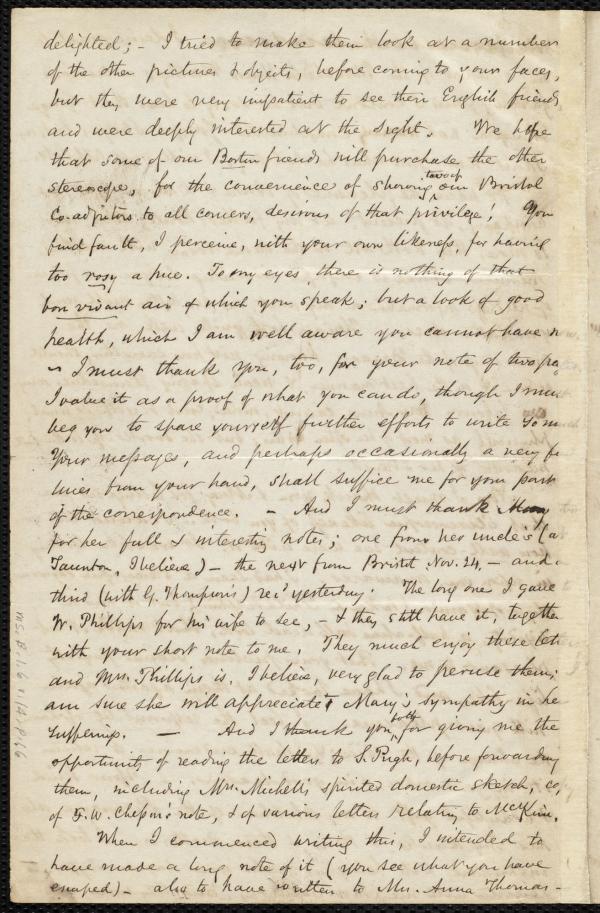 delighted; - I tried to make them look at a number
of the other pictures & objects, before coming to your faces,
but they were very impatient to see their English friends,
and were deeply interested at the sight. We hope
that some of our Boston friends will purchase the other
stereoscope, for the convenience of showing two of our Bristol
Co-adjutors to all comers, desirous of that privilege! You
find fault, I perceive, with your own likeness, for having
too rosy a hue. To my eyes there is nothing of that
bon vivant air of which you speak; but a look of good
health, which I am well aware you cannot have n
- I must thank you, too, for your note of two pa
I value it as a proof of what you can do, though I must
beg you to spare yourself further efforts to write so m
Your messages, and perhaps occasionally a very fe
lines from your hand, shall suffice me for your part
of the correspondence. - And I must thank Mary
for her full & interesting notes; one from her uncle's (at
Taunton, I believe) - the next from Bristol Nov. 24, - and a
third (with G. Thompson's) rec'd yesterday. The long one I gave
W. Phillips for his wife to see, - & they still have it, together
with your short note to me. They much enjoy these let
and Mrs. Phillips is, I believe, very glad to peruse them;
am sure she will appreciate Mary's sympathy in he
sufferings. - And I thank you both for giving me the
opportunity of reading the letters to S. Pugh, before forwarding
them, including Mrs. Michell's spirited domestic sketch, co
of F. W. Chesson's note, & of various letters relating to McKim.
When I commenced writing this, I intended to
have made a long note of it (you see what you have
escaped) - also to have written to Mrs. Anna Thomas -
MS.B.1.6 v.